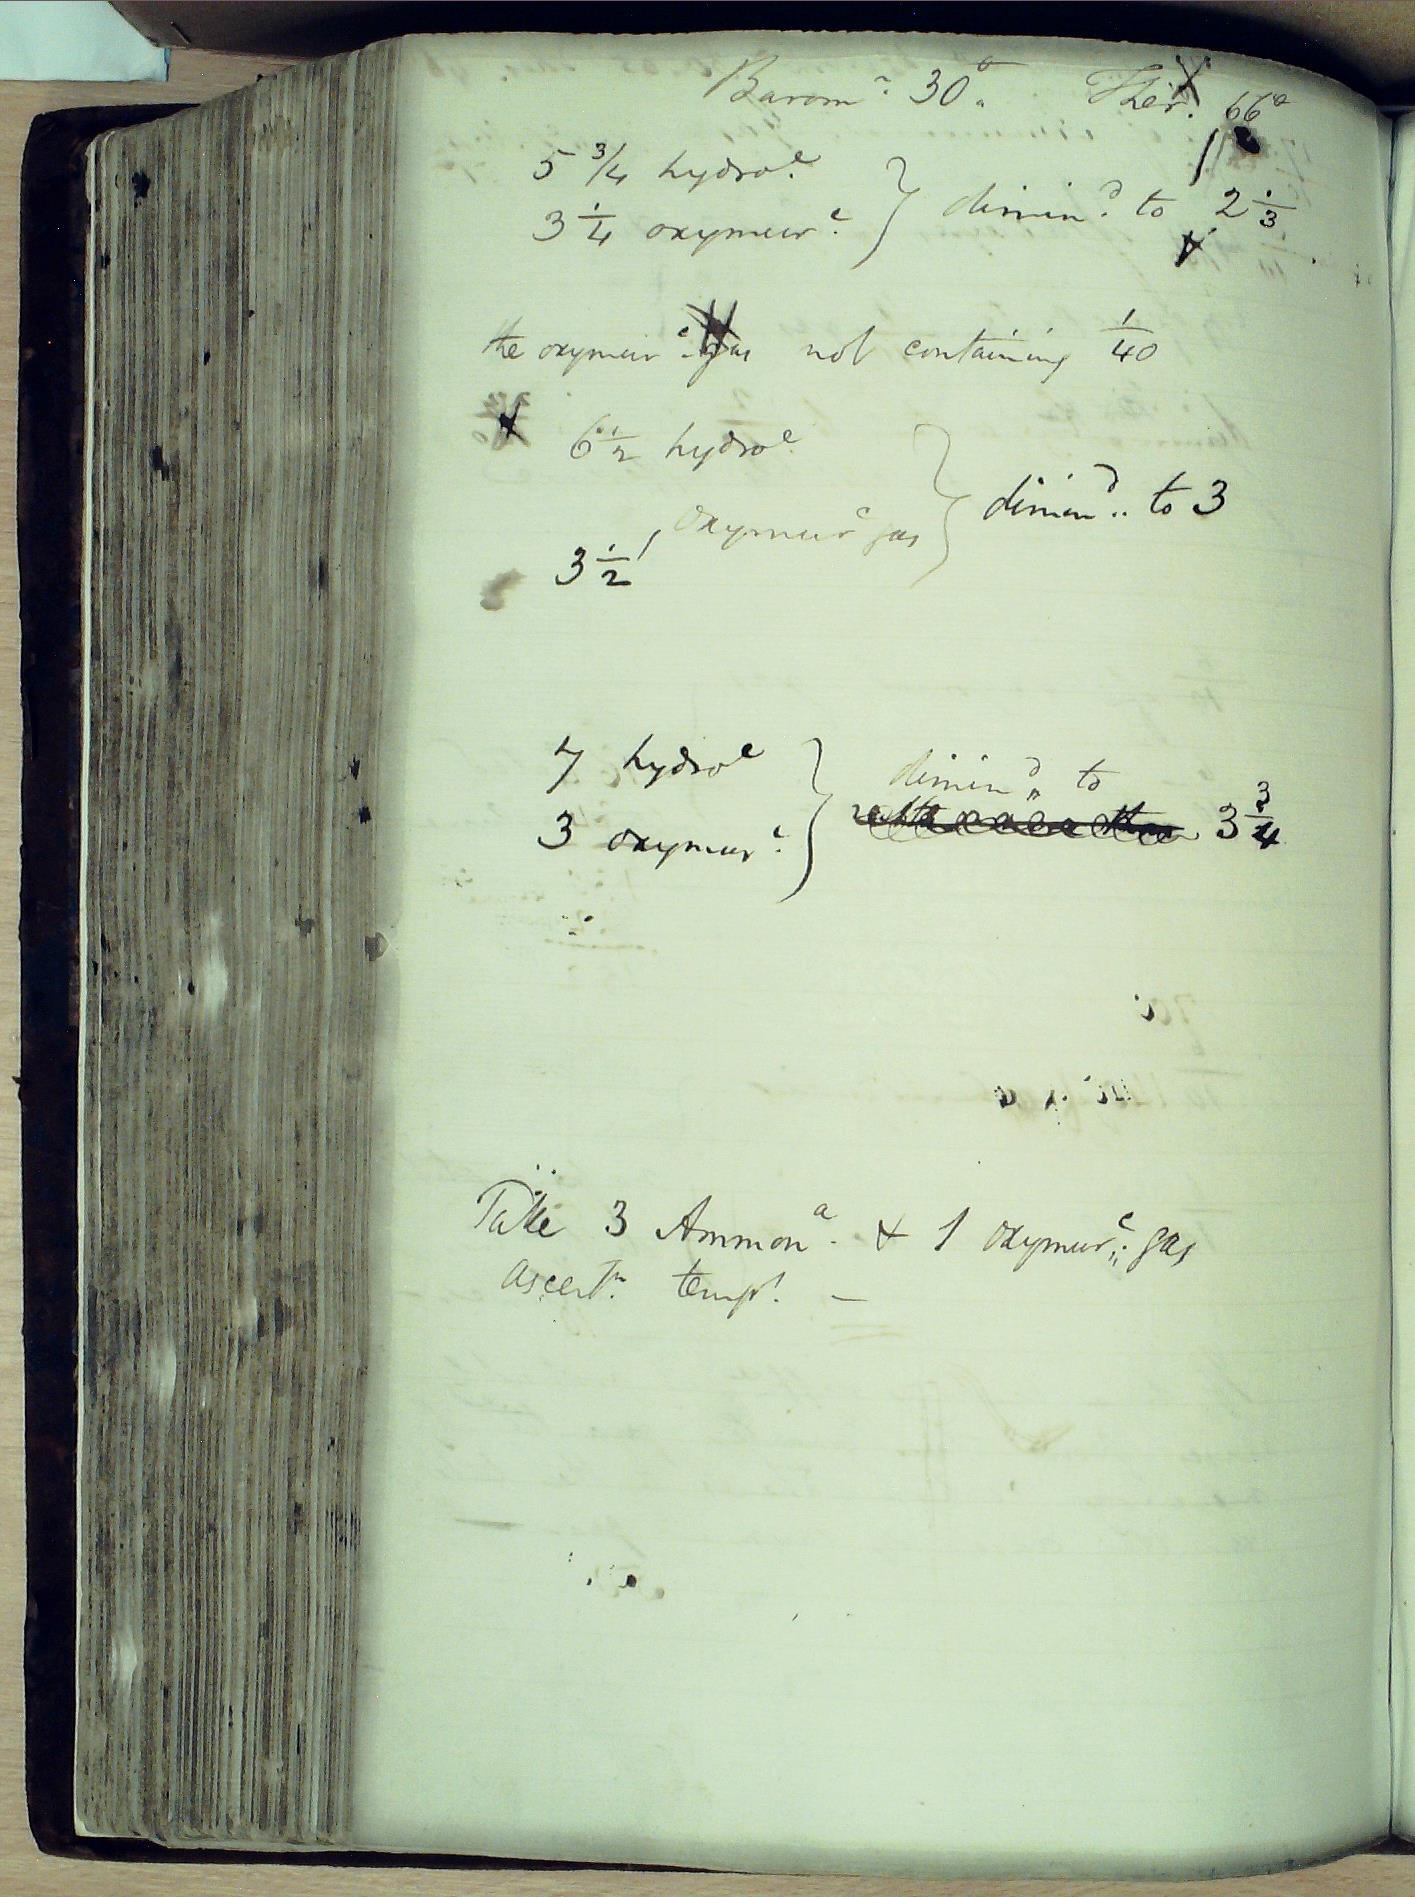 Barom.r 30.o Ther. 66o
5 3/4 hydro.e
3 1/4 oxymur.c } dimin.d to 2 1/3
the oxymur.c gas not containing 1/40
6 1/2 hydroe
oxymurc gas } dimin.d to 3
3 1/2
7 hydroe } dimin.d to
3 oxymur.c 3 3/4
Take 3 Ammon.a & 1 oxymur.c gas
ascert.n temp.t —